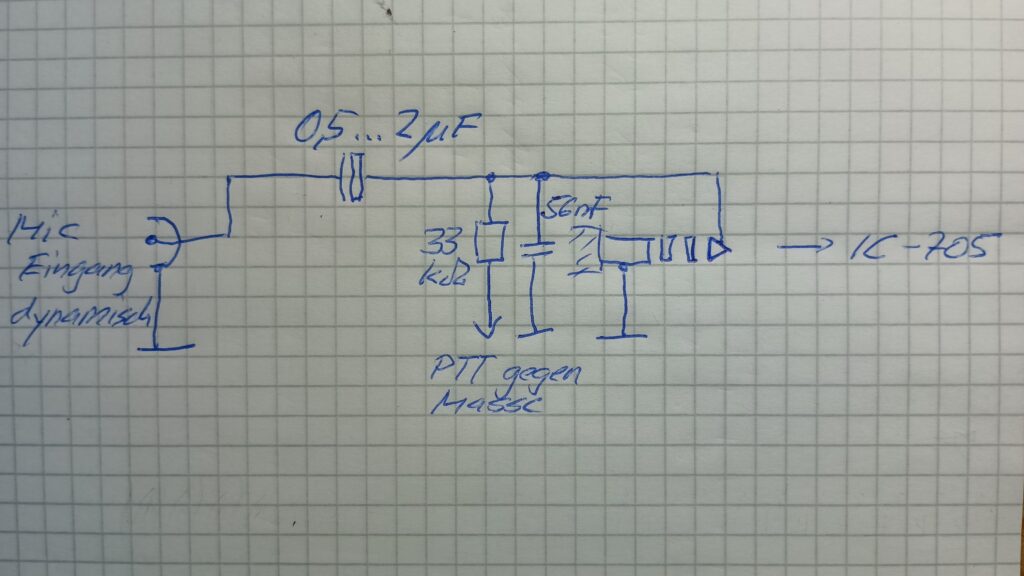 0,5...2µF
Mic
Eingang
dynamisch
33
kΩ
56nF
→ IC-705
PTT gegen
Masse